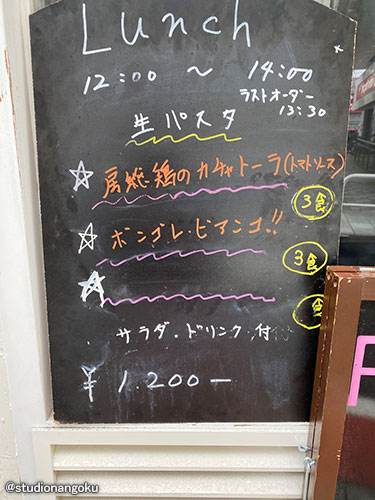 Lunch
12:00 〜 14:00
ラストオーダー
13:30
生パスタ
☆ 房総鶏のカチャトーラ(トマトソース)
3食
☆ ボンゴレ・ビアンコ!!
3食
☆
食
サラダ・ドリンク付
¥1,200−
@studionangoku